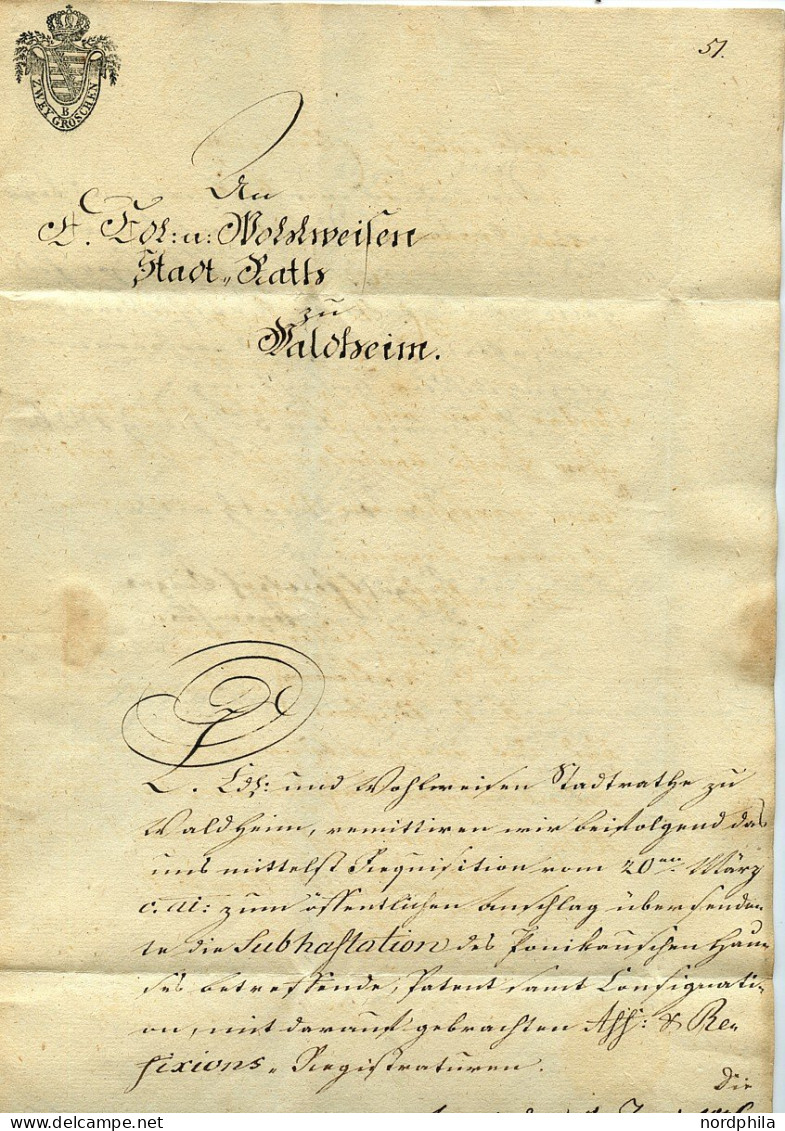 51.
ZWEY GROSCHEN
B
An
E. Edl: u: Wohlweisen
Stadt-Rath
zu
Waldheim.
E. Edl: und Wohlweisen Stadtrathe zu
Waldheim, remittiren wir beifolgend das
uns mittelst Requisition vom 20ten März
c. ai: zum öffentlichen Anschlag übersende-
te die Subhastation des Ponikauschen Hau-
ses betreffende, Patent samt Consignati-
on, mit darauf gebrachten Aff: & Re-
fixions-Registraturen.
Die
nordphila